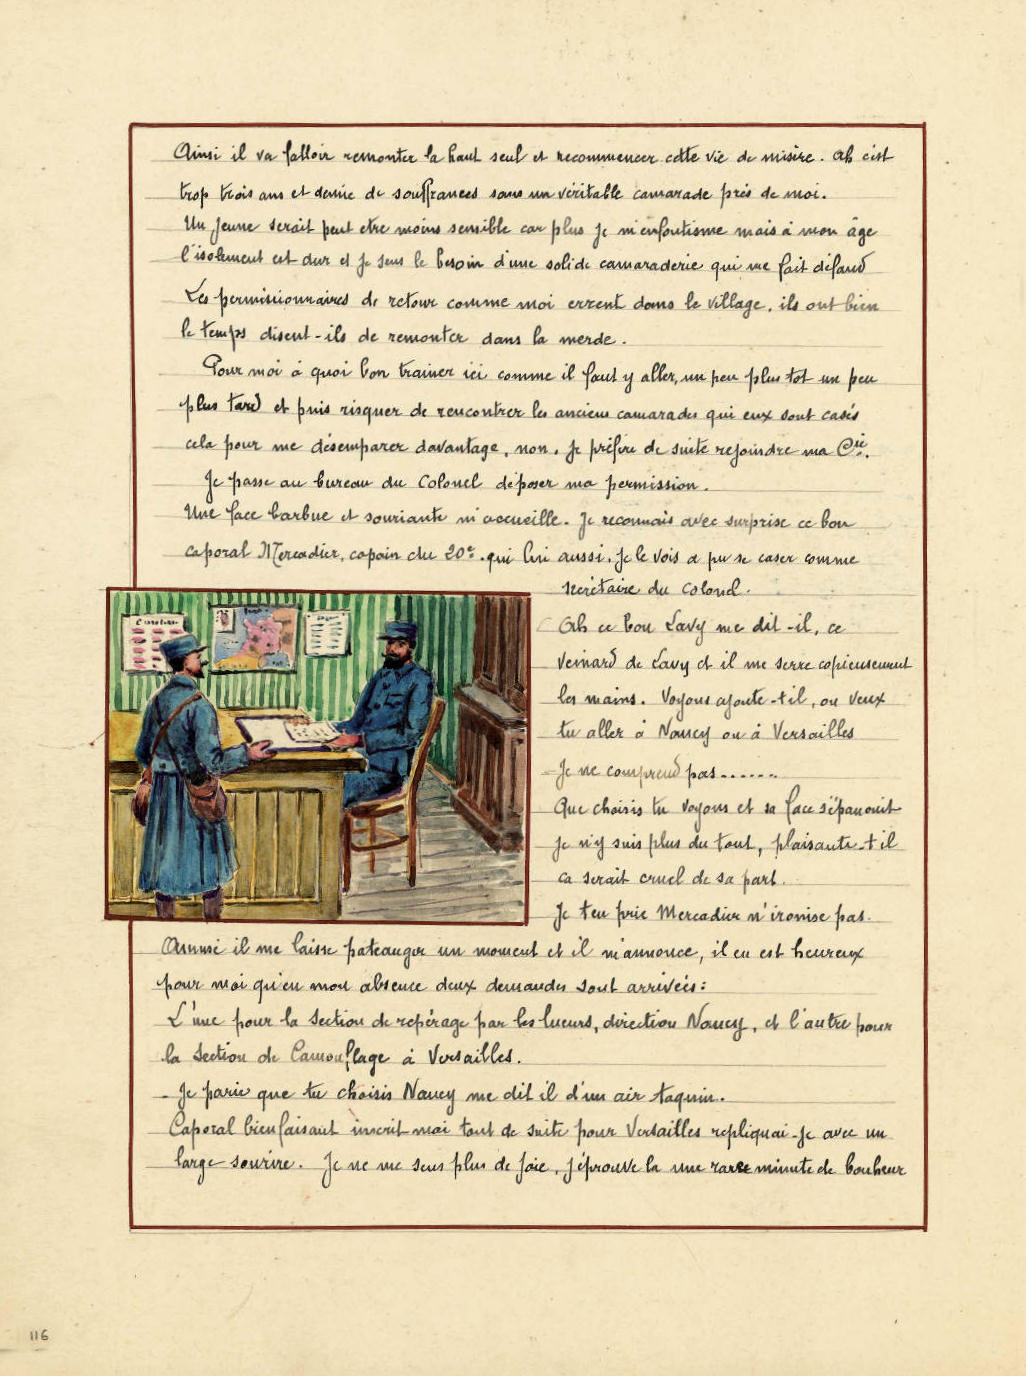 Ainsi il va falloir remonter la haut seul et recommencer cette vie de misère. ah c'est
trop trois ans et demie de souffrances sans un véritable camarade près de moi.
Un jeune serait peut etre moins sensible car plus je m'enfoutisme mais à mon âge
l'isolement est dur et je sens le besoin d'une solide camaraderie qui me fait défaud
Les permissionnaires de retour comme moi errent dans le village, ils ont bien
le temps disent-ils de remonter dans la merde.
Pour moi à quoi bon trainer ici comme il faut y aller, un peu plus tot un peu
plus tard et puis risquer de rencontrer les anciens camarades qui eux sont casés
cela pour me désemparer davantage, non. Je préfère de suite rejoindre ma Cie.
Je passe au bureau du Colonel déposer ma permission.
Une face barbue et souriante m'accueille. Je reconnais avec surprise ce bon
caporal Mercadier, copain du 20e. qui lui aussi, je le vois a pu se caser comme
secrétaire du colonel.
Ah ce bon Lavy me dit-il, ce
veinard de Lavy et il me serre copieusement
les mains. Voyons ajoute-t il, ou veux
tu aller à Nancy ou à Versailles
- Je ne comprend pas......
Que choisis tu voyons et sa face s'épanouit
Je n'y suis plus du tout, plaisante-t il
ca serait cruel de sa part.
Je t'en prie Mercadier n'ironise pas.
Amusé il me laisse pateauger un moment et il m'annonce, il en est heureux
pour moi qu'en mon absence deux demandes sont arrivées:
L'une pour la Section de repérage par les lueurs, direction Nancy, et l'autre pour
la Section de Camouflage à Versailles.
- Je parie que tu choisis Nancy me dit il d'un air taquin.
Caporal bienfaisant inscrit moi tout de suite pour Versailles repliquai-je avec un
large sourire. Je ne me sens plus de joie, j'éprouve la une rare minute de bonheur
116